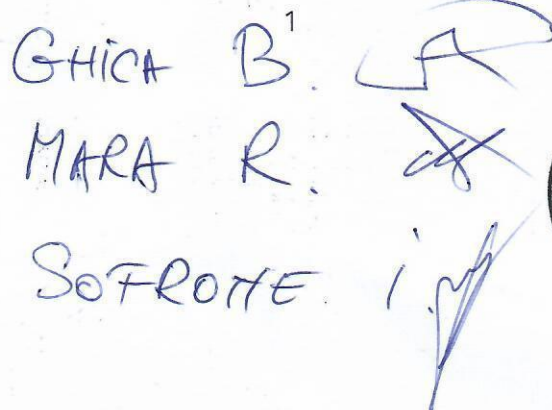 GHICA B. 1
MARA R.
SOFRONE i.